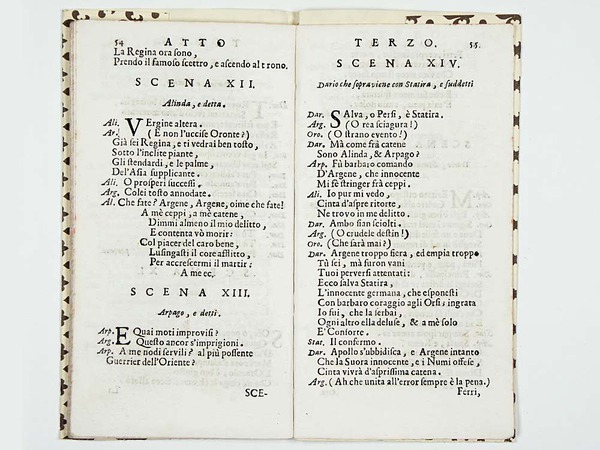 54 ATTO
La Regina ora sono,
Prendo il famoso scettro, e ascendo al trono.
SCENA XII.
Alinda, e detta.
Ali. VErgine altera.
Ar. (E non l'uccise Oronte?)
Già sei Regina, e ti vedrai ben tosto,
Sotto l'inclite piante,
Gli stendardi, e le palme,
Del'Asia supplicante.
Ali. O prosperi successi.
Arg. Colei tosto annodate.
Al. Che fate? Argene, Argene, oime che fate!
A mè ceppi, a mè catene,
Dimmi almeno il mio delitto,
E contenta vò morir:
Col piacer del caro bene,
Lusingasti il core afflitto,
Per accrescermi il martir:
A me ec.
SCENA XIII.
Arpago, e detti.
Arp. EQuai moti improvisi?
Arg. Questo ancor s'imprigioni.
Arp. A me nodi servili? al più possente
Guerrier dell'Oriente?
SCE-
TERZO. 55.
SCENA XIV.
Dario che sopraviene con Statira, e suddetti
Dar. SAlva, o Persi, è Statira.
Arg. (O rea sciagura!)
Oro. (O strano evento!)
Dar. Mà come frà catene
Sono Alinda, & Arpago?
Arp. Fù barbaro comando
D'Argene, che innocente
Mi fè stringer frà ceppi.
Ali. Io pur mi vedo,
Cinta d'aspre ritorte,
Ne trovo in me delitto.
Dar. Ambo sian sciolti.
Arg. (O crudele destin!)
Oro. (Che sarà mai?)
Dar. Argene troppo fiera, ed empia troppo
Tù sei, mà furon vani
Tuoi perversi attentati:
Ecco salva Statira,
L'innocente germana, che esponesti
Con barbaro coraggio agli Orsi; ingrata
Io fui, che la serbai,
Ogni altro ella deluse, & a mè solo
E' Consorte.
Stat. Il confermo.
Dar. Apollo s'ubbidisca, e Argene intanto
Che la Suora innocente, e i Numi offese,
Cinta vivrà d'asprissima catena.
Arg. (Ah che unita all'error sempre è la pena.)
Ferri,